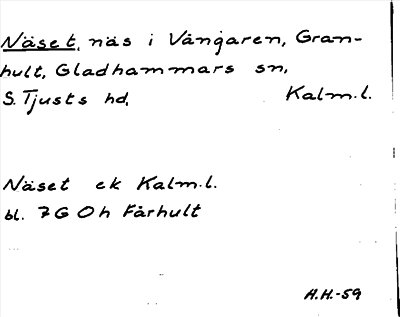 Näset, näs i Vångaren, Gran-
hult, Gladhammars sn,
S. Tjusts hd, Kalm.l.
Näset ek Kalm.l.
bl. 7G 0h Fårhult
A.H.-59